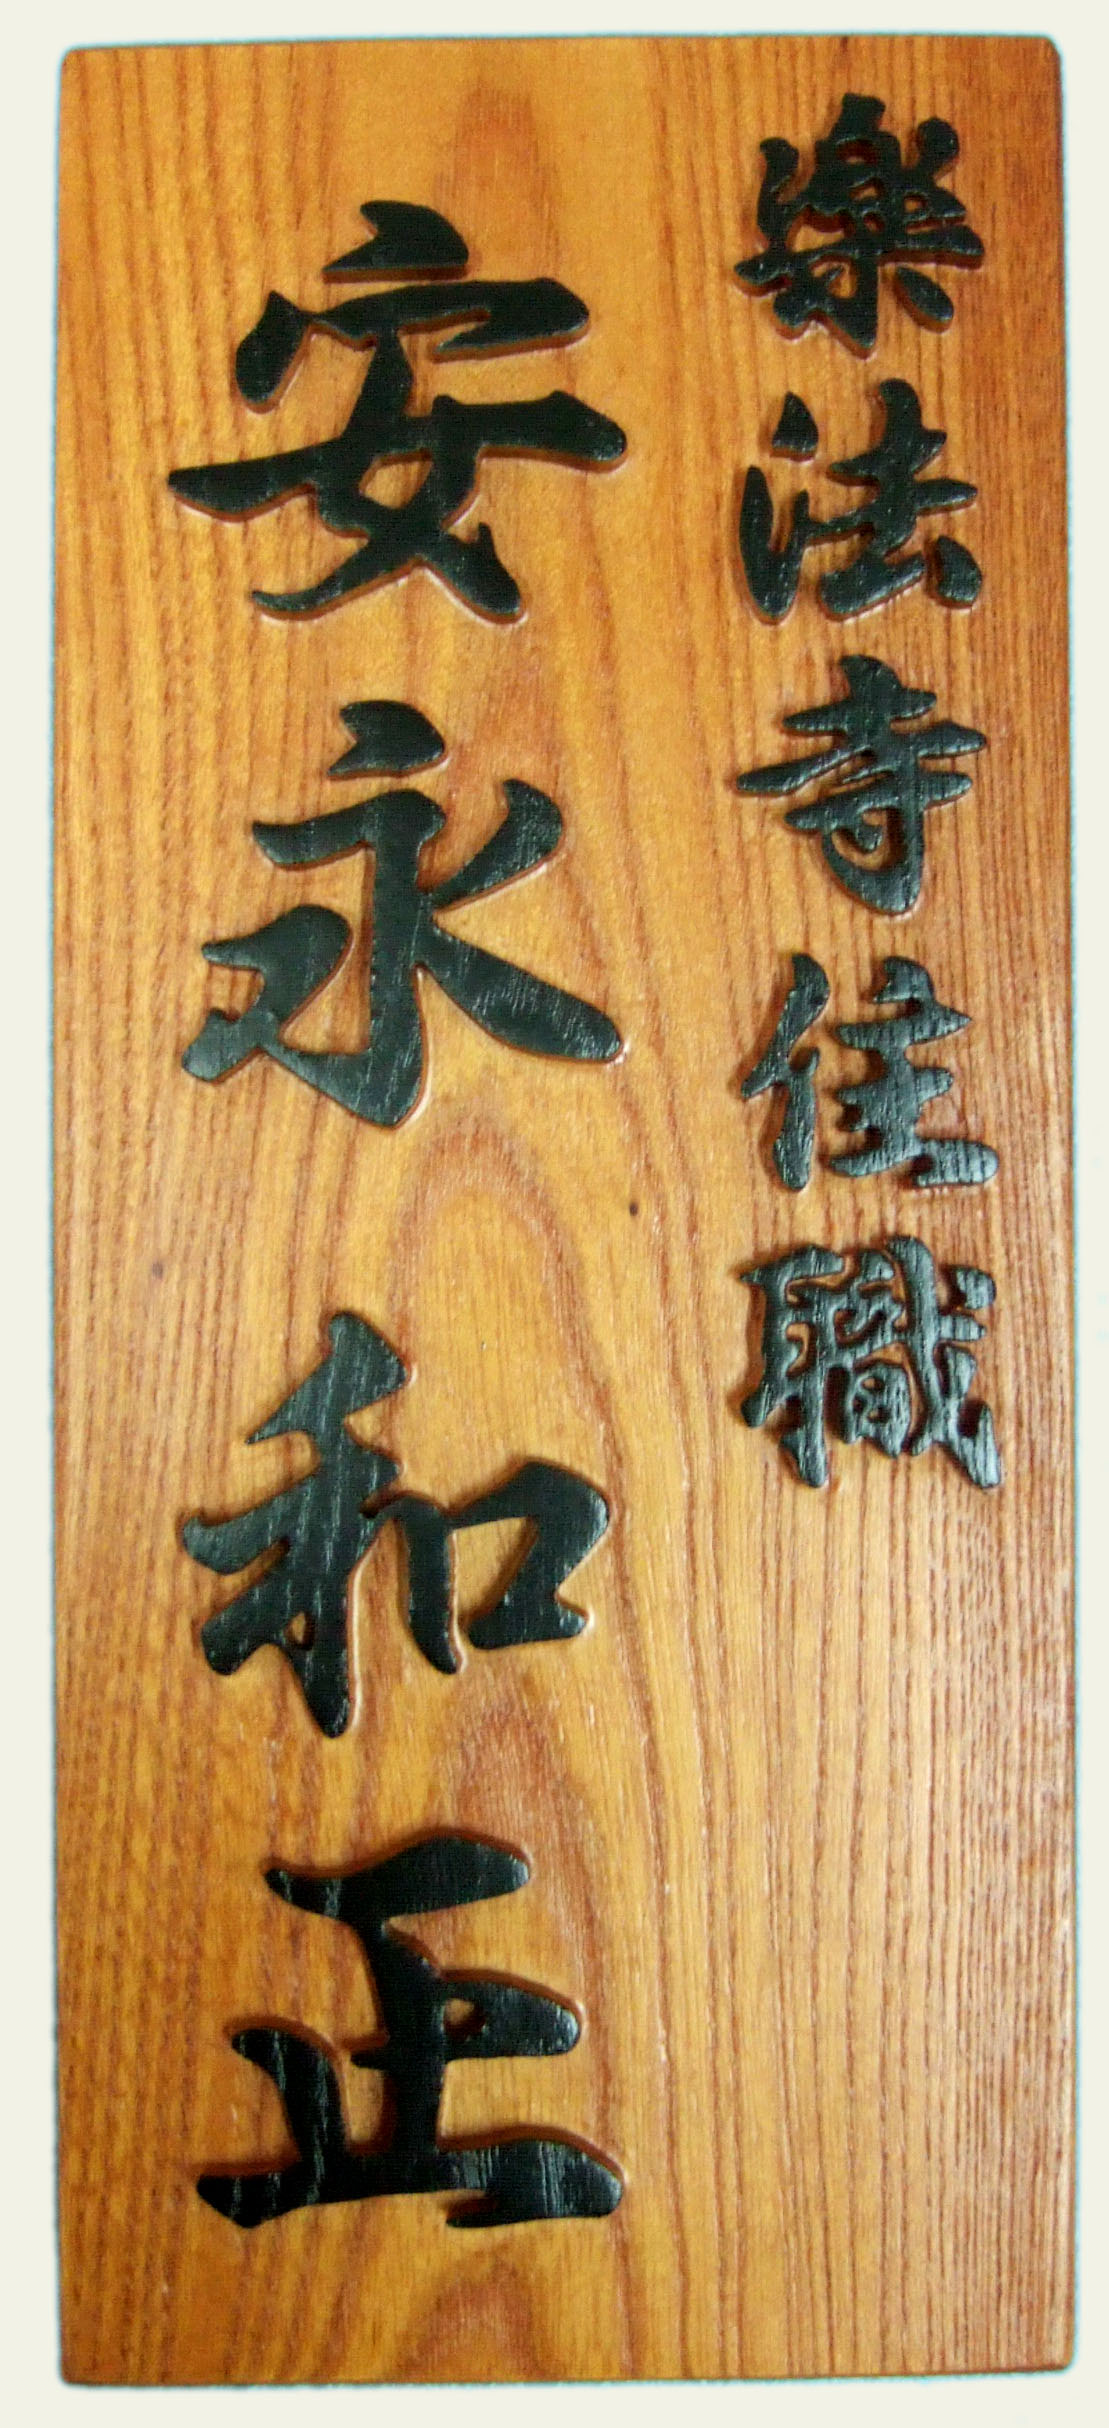 楽法寺住職
安永和正